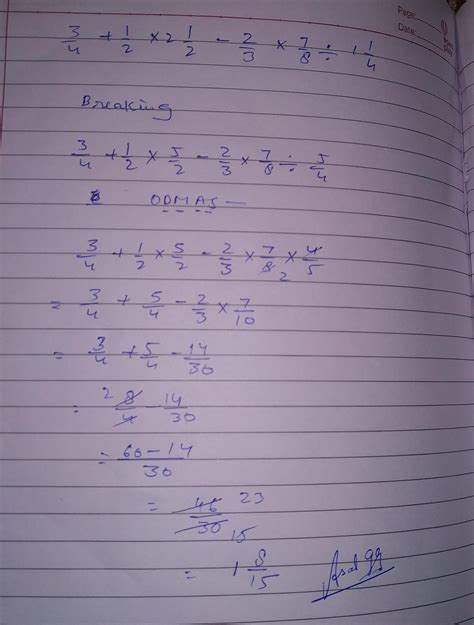 Page:
Date:
3/4 + 1/2 × 2 1/2 - 2/3 × 7/8 ÷ 1 1/4
Breaking
3/4 + 1/2 × 5/2 - 2/3 × 7/8 ÷ 5/4
ODMAS —
3/4 + 1/2 × 5/2 - 2/3 × 7/8 2 × 4/5
= 3/4 + 5/4 - 2/3 × 7/10
= 3/4 + 5/4 - 14/30
= 2 8/4 - 14/30
= 60 - 14/30
= 46/30 23 15
= 1 8/15